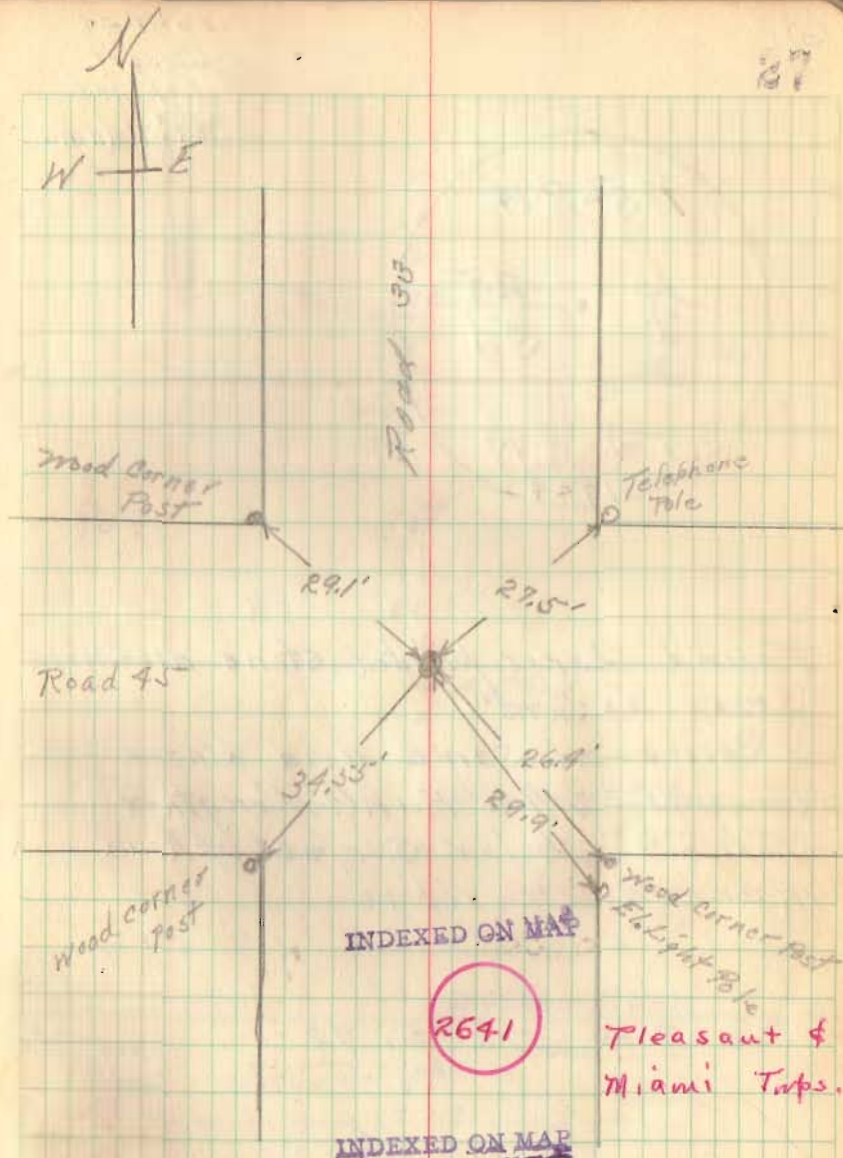 N
27
W E
Road 33
Wood Corner
Post
Telephone
Pole
29.1'
27.5'
Road 45
34.55'
26.9'
29.9'
Wood Corner
Post
Wood Corner Post
El. Light Pole
INDEXED ON MAP
2641
Pleasant &
Miami Twps.
INDEXED ON MAP